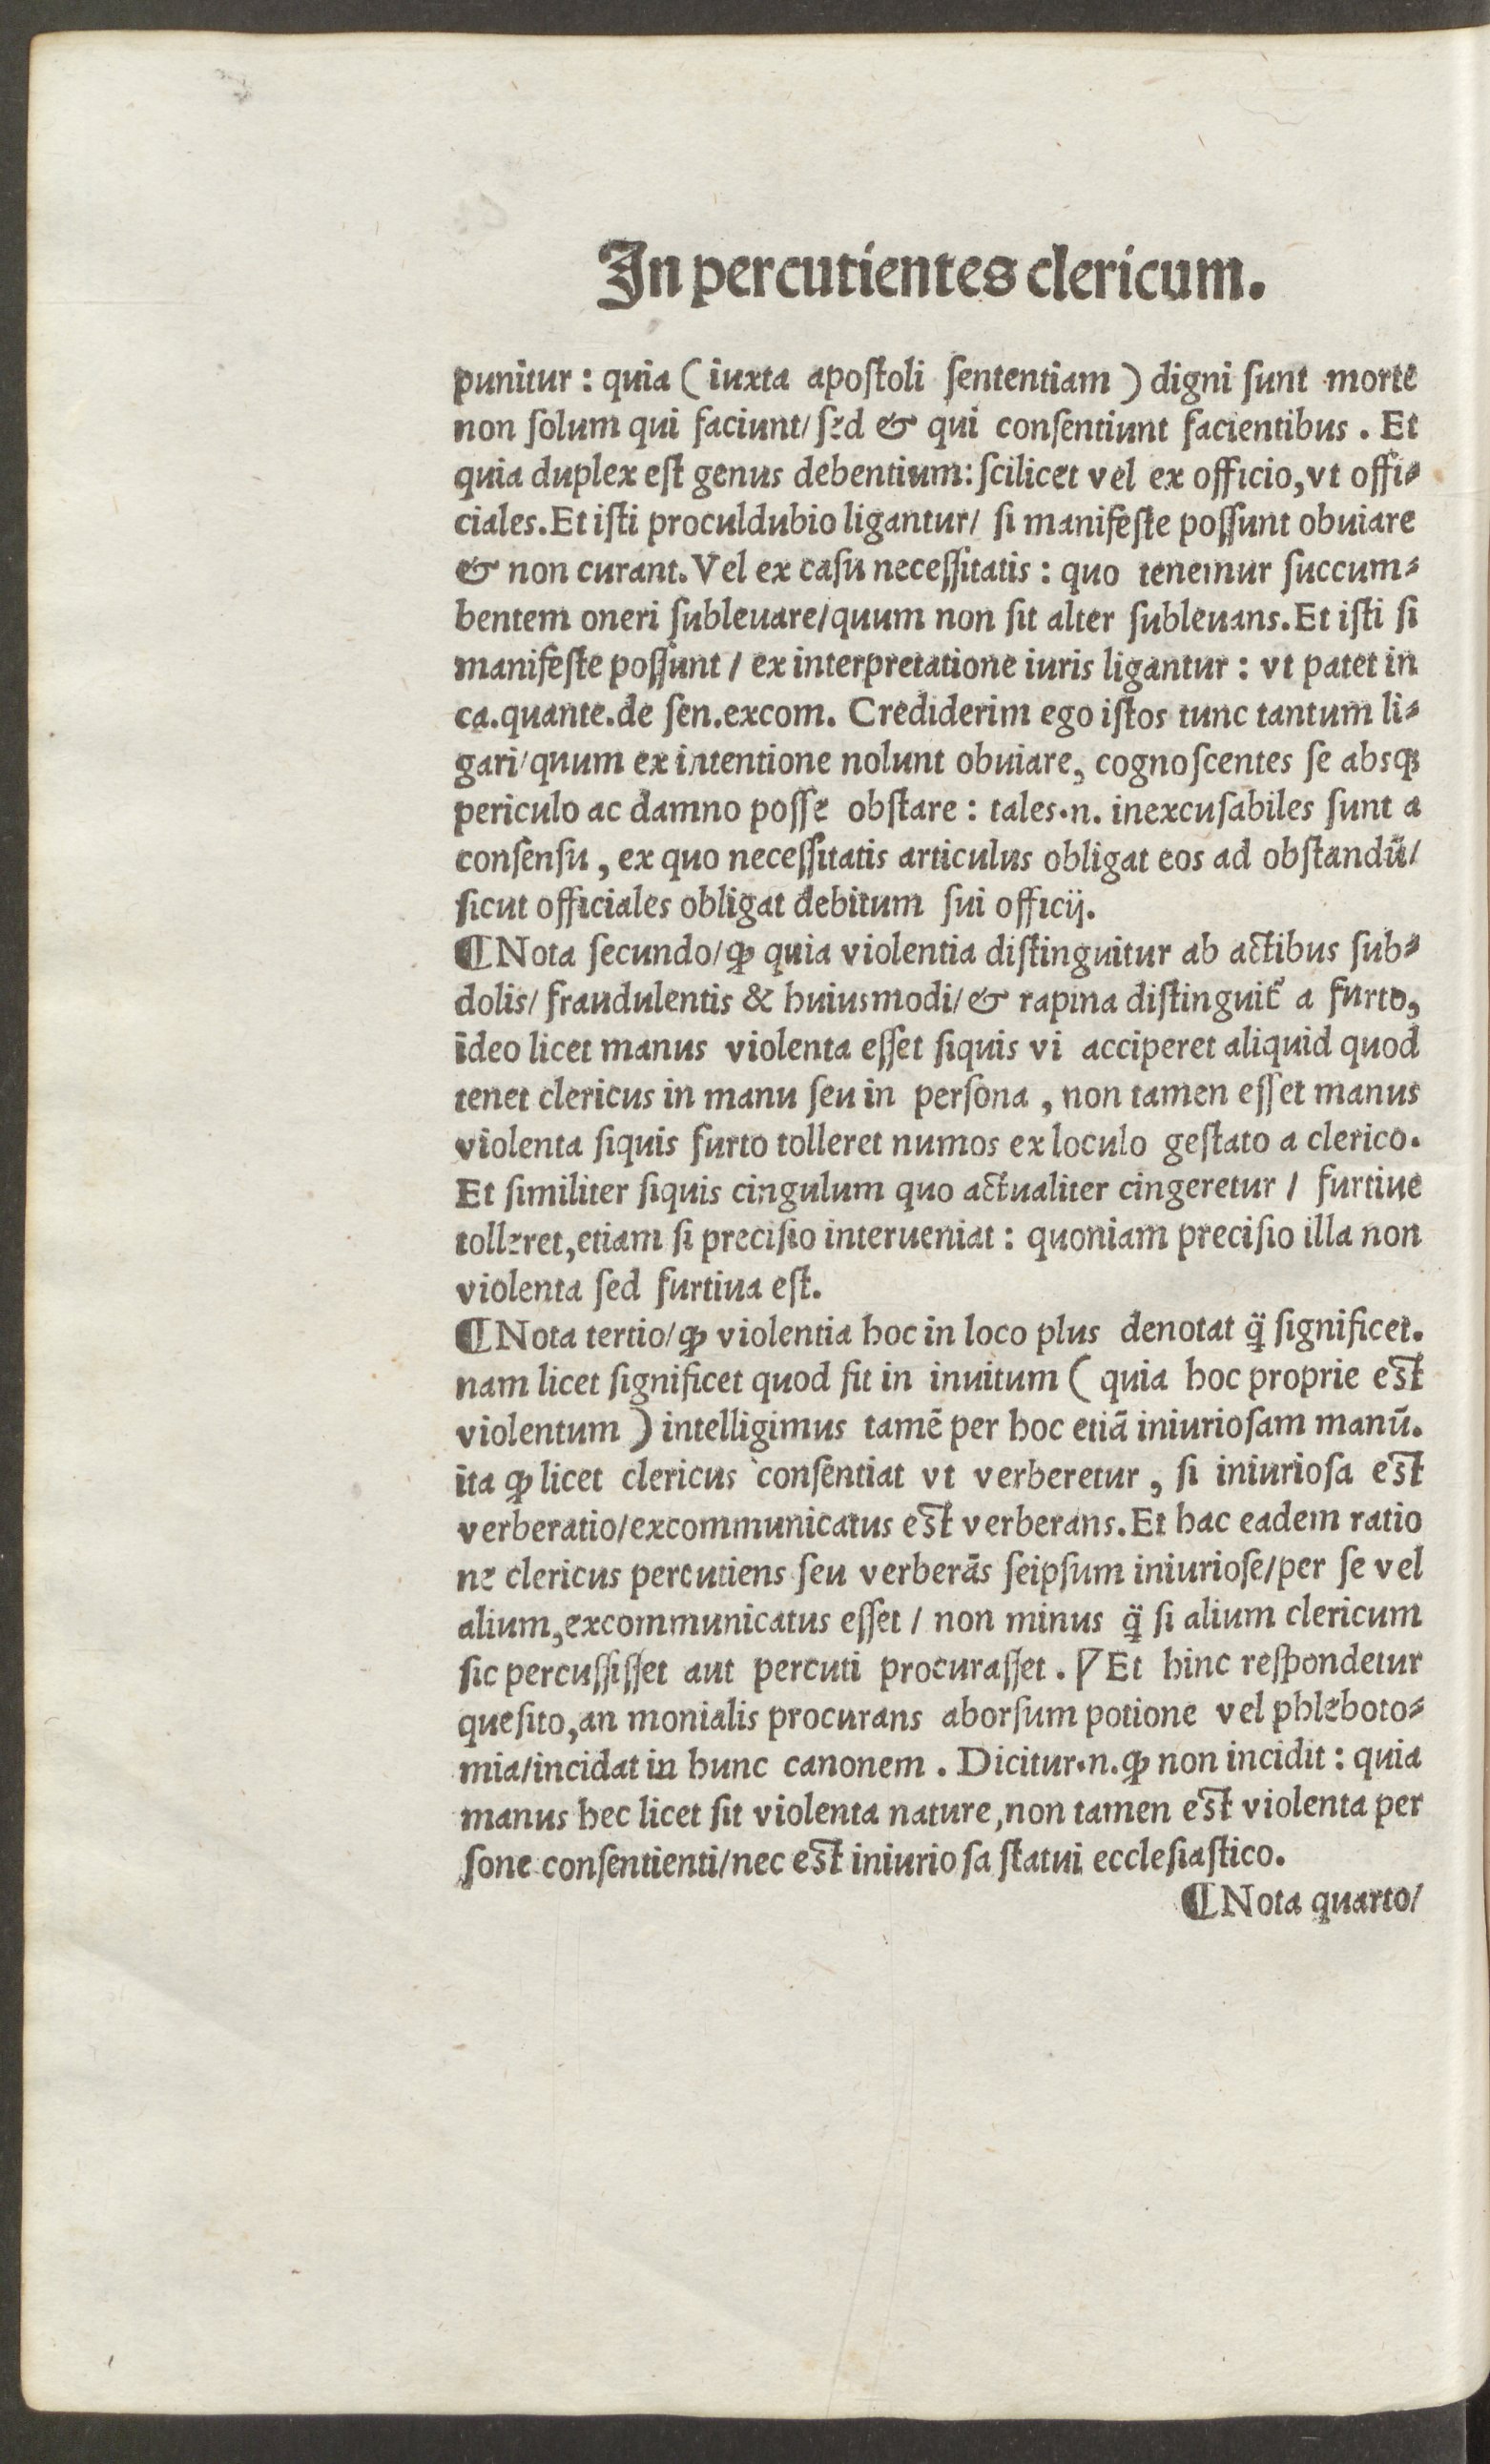 In percutientes clericum.
punitur : quia ( iuxta apoſtoli ſententiam ) digni ſunt morte
non ſolum qui faciunt/ ſed & qui conſentiunt facientibus . Et
quia duplex eſt genus debentium: ſcilicet vel ex officio, vt offi⸗
ciales. Et iſti proculdubio ligantur/ ſi manifeſte poſſunt obuiare
& non curant. Vel ex caſu neceſſitatis : quo tenemur ſuccum⸗
bentem oneri ſubleuare/quum non ſit alter ſubleuans. Et iſti ſi
manifeſte poſſunt / ex interpretatione iuris ligantur : vt patet in
ca.quante.de ſen.excom. Crediderim ego iſtos tunc tantum li⸗
gari/quum ex intentione nolunt obuiare, cognoſcentes ſe absqꝫ
periculo ac damno poſſe obſtare : tales.n. inexcuſabiles ſunt a
conſenſu , ex quo neceſſitatis articulus obligat eos ad obſtandū/
ſicut officiales obligat debitum ſui officij.
¶Nota ſecundo/ꝙ quia violentia diſtinguitur ab actibus ſub⸗
dolis/ fraudulentis & huiusmodi/& rapina diſtinguit᷑ a furto,
ideo licet manus violenta eſſet ſiquis vi acciperet aliquid quod
tenet clericus in manu ſeu in perſona , non tamen eſſet manus
violenta ſiquis furto tolleret numos ex loculo geſtato a clerico.
Et ſimiliter ſiquis cingulum quo actualiter cingeretur / furtiue
tolleret, etiam ſi preciſio interueniat : quoniam preciſio illa non
violenta ſed furtiua eſt.
¶Nota tertio/ꝙ violentia hoc in loco plus denotat q̈ ſignificet.
nam licet ſignificet quod fit in inuitum ( quia hoc proprie eſt
violentum ) intelligimus tamē per hoc etiā iniurioſam manū.
ita ꝙ licet clericus conſentiat vt verberetur , ſi iniurioſa eſt
verberatio/excommunicatus eſt verberans. Et hac eadem ratio
ne clericus percutiens ſeu verberās ſeipſum iniurioſe/per ſe vel
alium, excommunicatus eſſet / non minus q̈ ſi alium clericum
ſic percuſſiſſet aut percuti procuraſſet . ꝟ Et hinc reſpondetur
queſito, an monialis procurans aborſum potione vel phleboto⸗
mia/incidat in hunc canonem . Dicitur.n.ꝙ non incidit : quia
manus hec licet ſit violenta nature, non tamen eſt violenta per
ſone conſentienti/nec eſt iniurioſa ſtatui eccleſiaſtico.
¶Nota quarto/